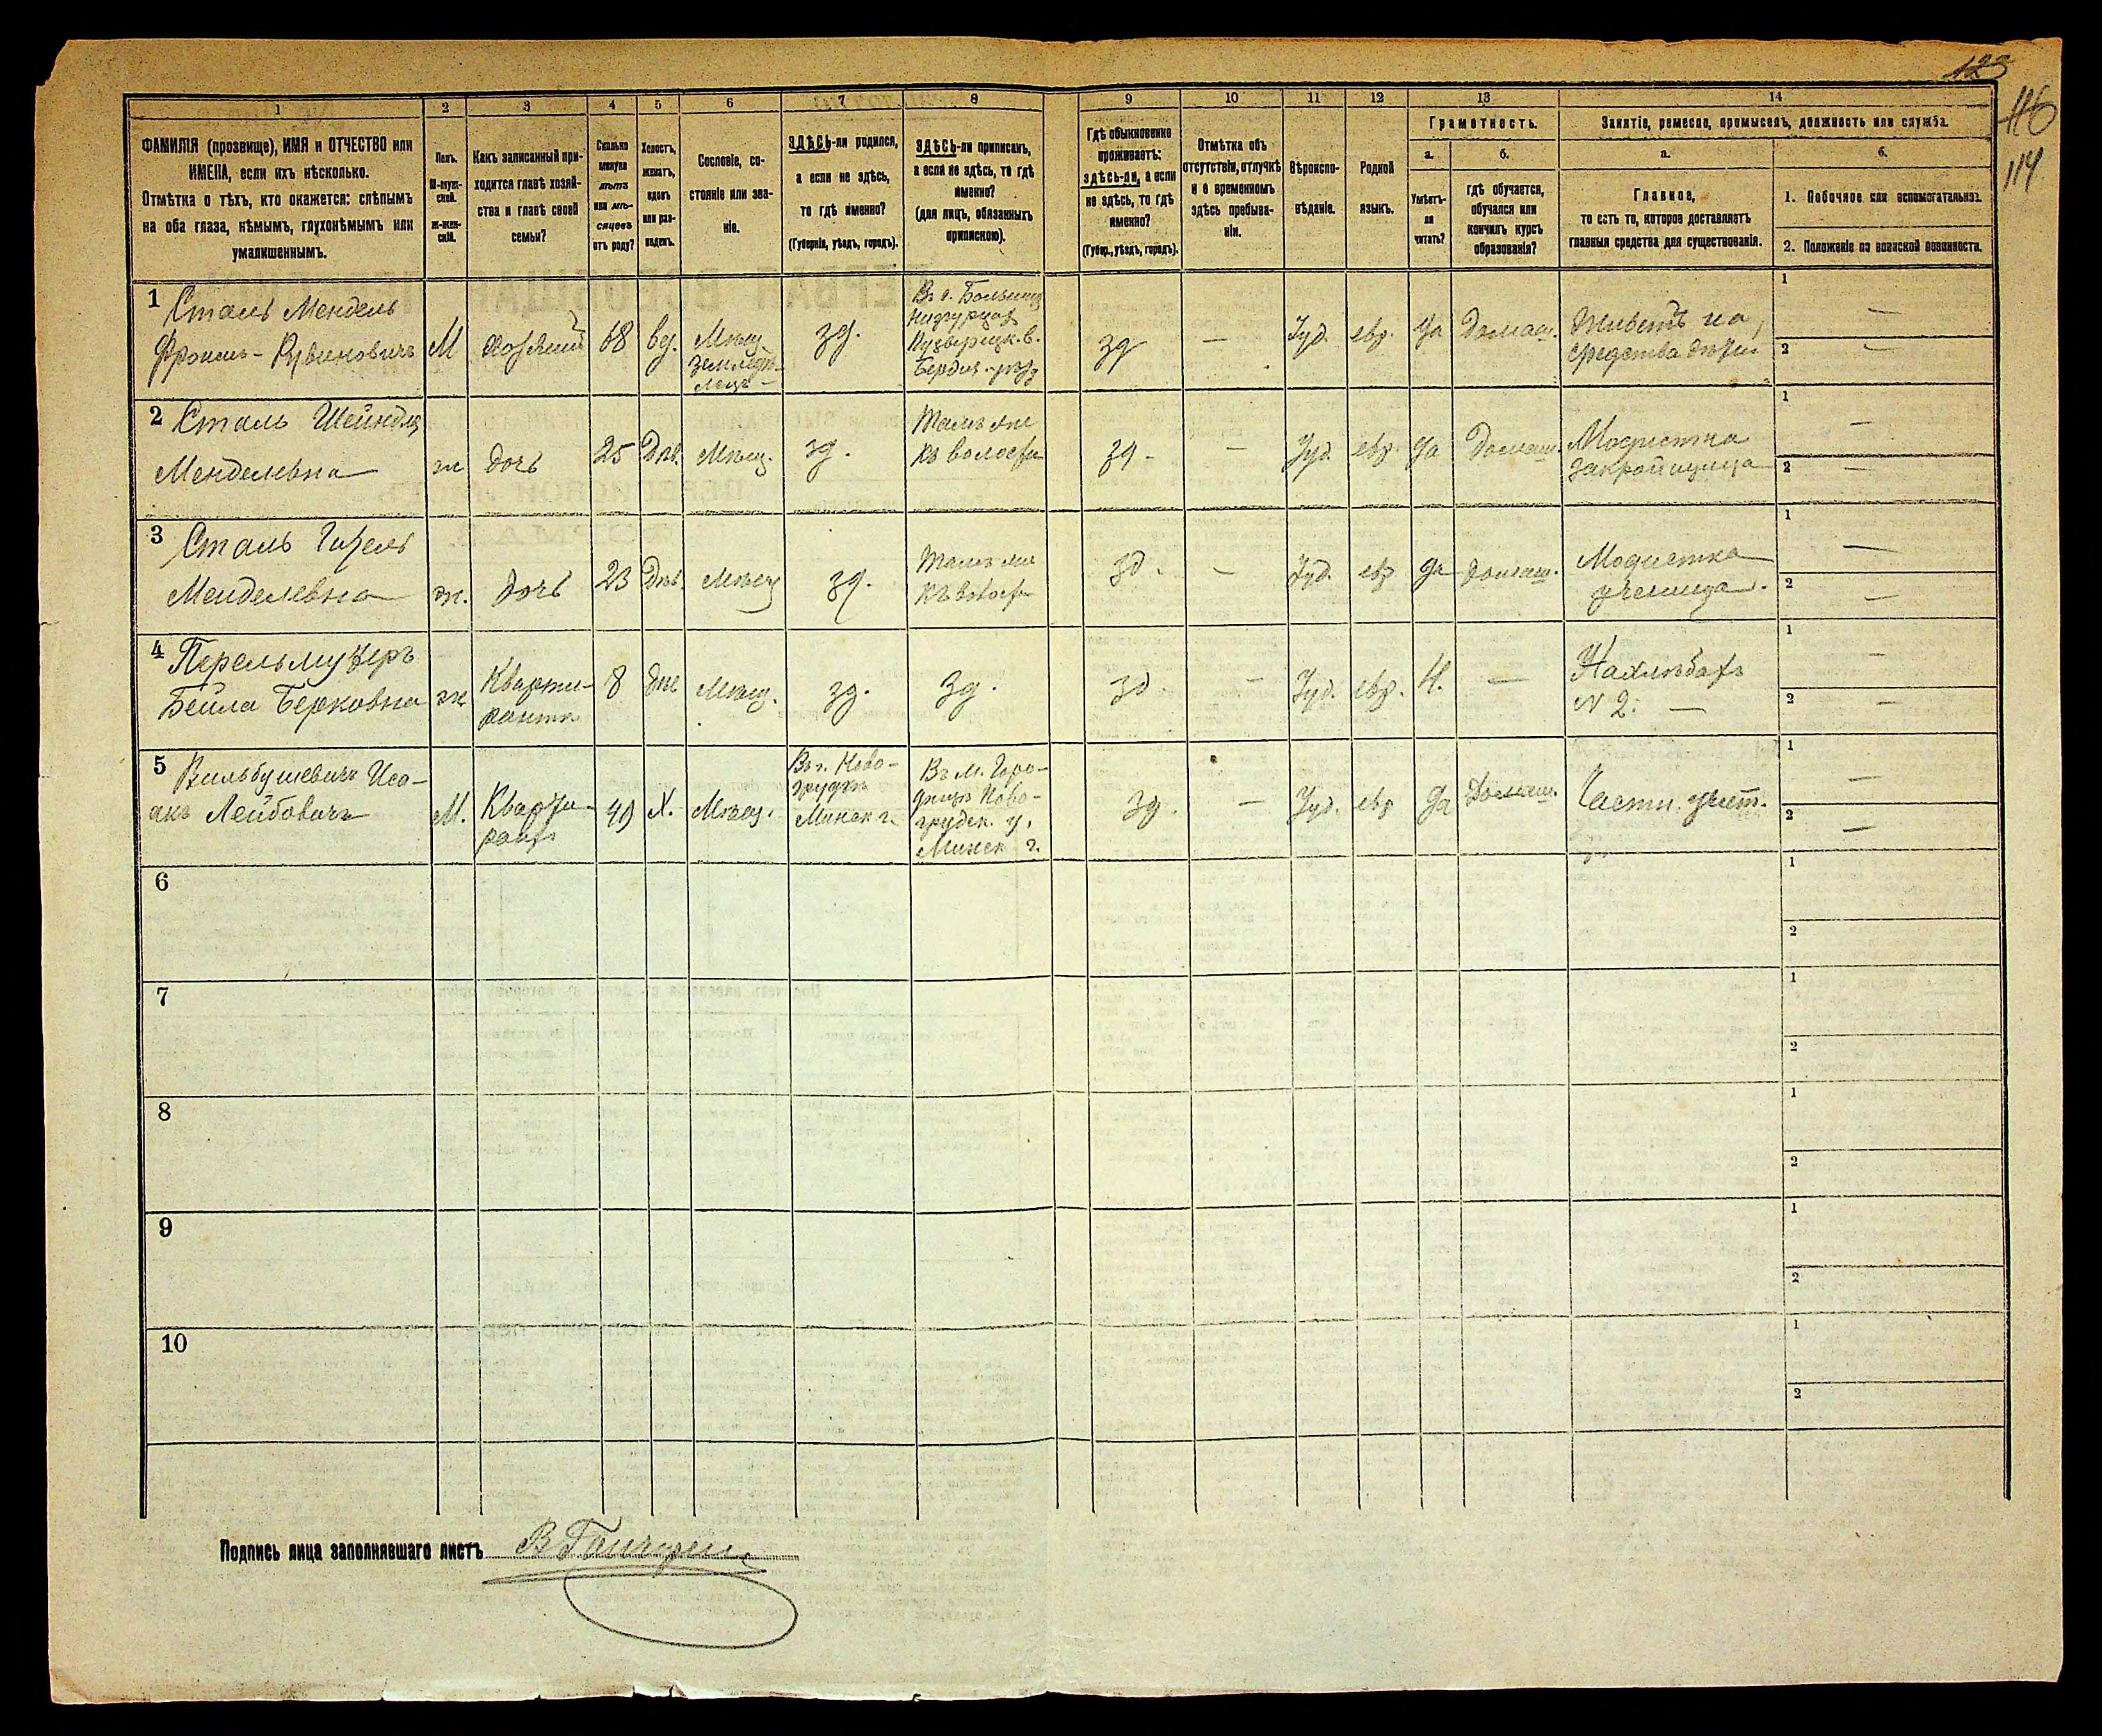 123
116
114
1
2
3
4
5
6
7
8
9
10
11
12
13
14
ФАМИЛІЯ (прозвище), ИМЯ и ОТЧЕСТВО или
ИМЕНА, если ихъ нѣсколько.
Отмѣтка о тѣхъ, кто окажется: слѣпымъ
на оба глаза, нѣмымъ, глухонѣмымъ или
умалишеннымъ.
Полъ.
М-муж-
ской.
Ж-жен-
скій.
Какъ записанный при-
ходится главѣ хозяй-
ства и главѣ своей
семьи?
Сколько
минуло
лѣтъ
или мѣ-
сяцевъ
отъ роду?
Холостъ,
женатъ,
вдовъ
или раз-
веденъ.
Сословіе, со-
стояніе или зва-
ніе.
ЗДѢСЬ-ли родился,
а если не здѣсь,
то гдѣ именно?
(Губернія, уѣздъ, городъ).
ЗДѢСЬ-ли приписанъ,
а если не здѣсь, то гдѣ
именно?
(для лицъ, обязанныхъ
припискою).
Гдѣ обыкновенно
проживаетъ:
здѣсь-ли, а если
не здѣсь, то гдѣ
именно?
(Губер., уѣздъ, городъ).
Отмѣтка объ
отсутствіи, отлучкѣ
и о временномъ
здѣсь пребыва-
ніи.
Вѣроиспо-
вѣданіе.
Родной
языкъ.
Грамотность.
а.
Умѣетъ-
ли
читать?
б.
гдѣ обучается,
обучался или
кончилъ курсъ
образованія?
Занятіе, ремесло, промыселъ, должность или служба.
а.
Главное,
то есть то, которое доставляетъ
главныя средства для существованія.
б.
1. Побочное или вспомогательное.
2. Положеніе по воинской повинности.
1 Сталь Мендель
Фроимъ-Рувиновичъ
М
хозяинъ
68
вд.
Мѣщ.
земледѣ-
лецъ
зд.
Бердич. уѣзд
зд
—
Іуд.
евр.
Да
Домаш.
Живетъ на
средства дѣтей
1 —
2 —
2 Сталь Шейндля
Менделевна
ж
дочь
25
Дѣв.
Мѣщ.
зд.
Тамъ же
къ волости
зд.
—
Іуд.
евр.
Да
Домаш.
Модистка
закройщица
1 —
2 —
3 Сталь Гизель
Менделевна
ж.
дочь
23
Дѣв.
Мѣщ
зд.
Тамъ же
къ волост
зд.
—
Іуд.
евр
Да
Домаш.
Модистка
ученица.
1 —
2 —
4 Перельмутеръ
Бейла Берковна
ж
Кварти-
рантка
8
дѣв
Мѣщ.
зд.
зд.
зд.
—
Іуд.
евр.
Н.
—
Нахлѣботъ
N 2. —
1 —
2 —
5 Вильбушевичъ Иса-
акъ Лейбовичъ
М.
Кварти-
рантъ
49
Х.
Мѣщ.
Въ г. Ново-
грудкѣ
Минск г.
Въ м. Горо-
дищѣ Ново-
грудск. у.
Минск г.
зд.
—
Іуд.
евр
Да
Домаш.
Частн. учит.
1 —
2 —
6
1
2
7
1
2
8
1
2
9
1
2
10
1
2
Подпись лица заполнявшаго листъ